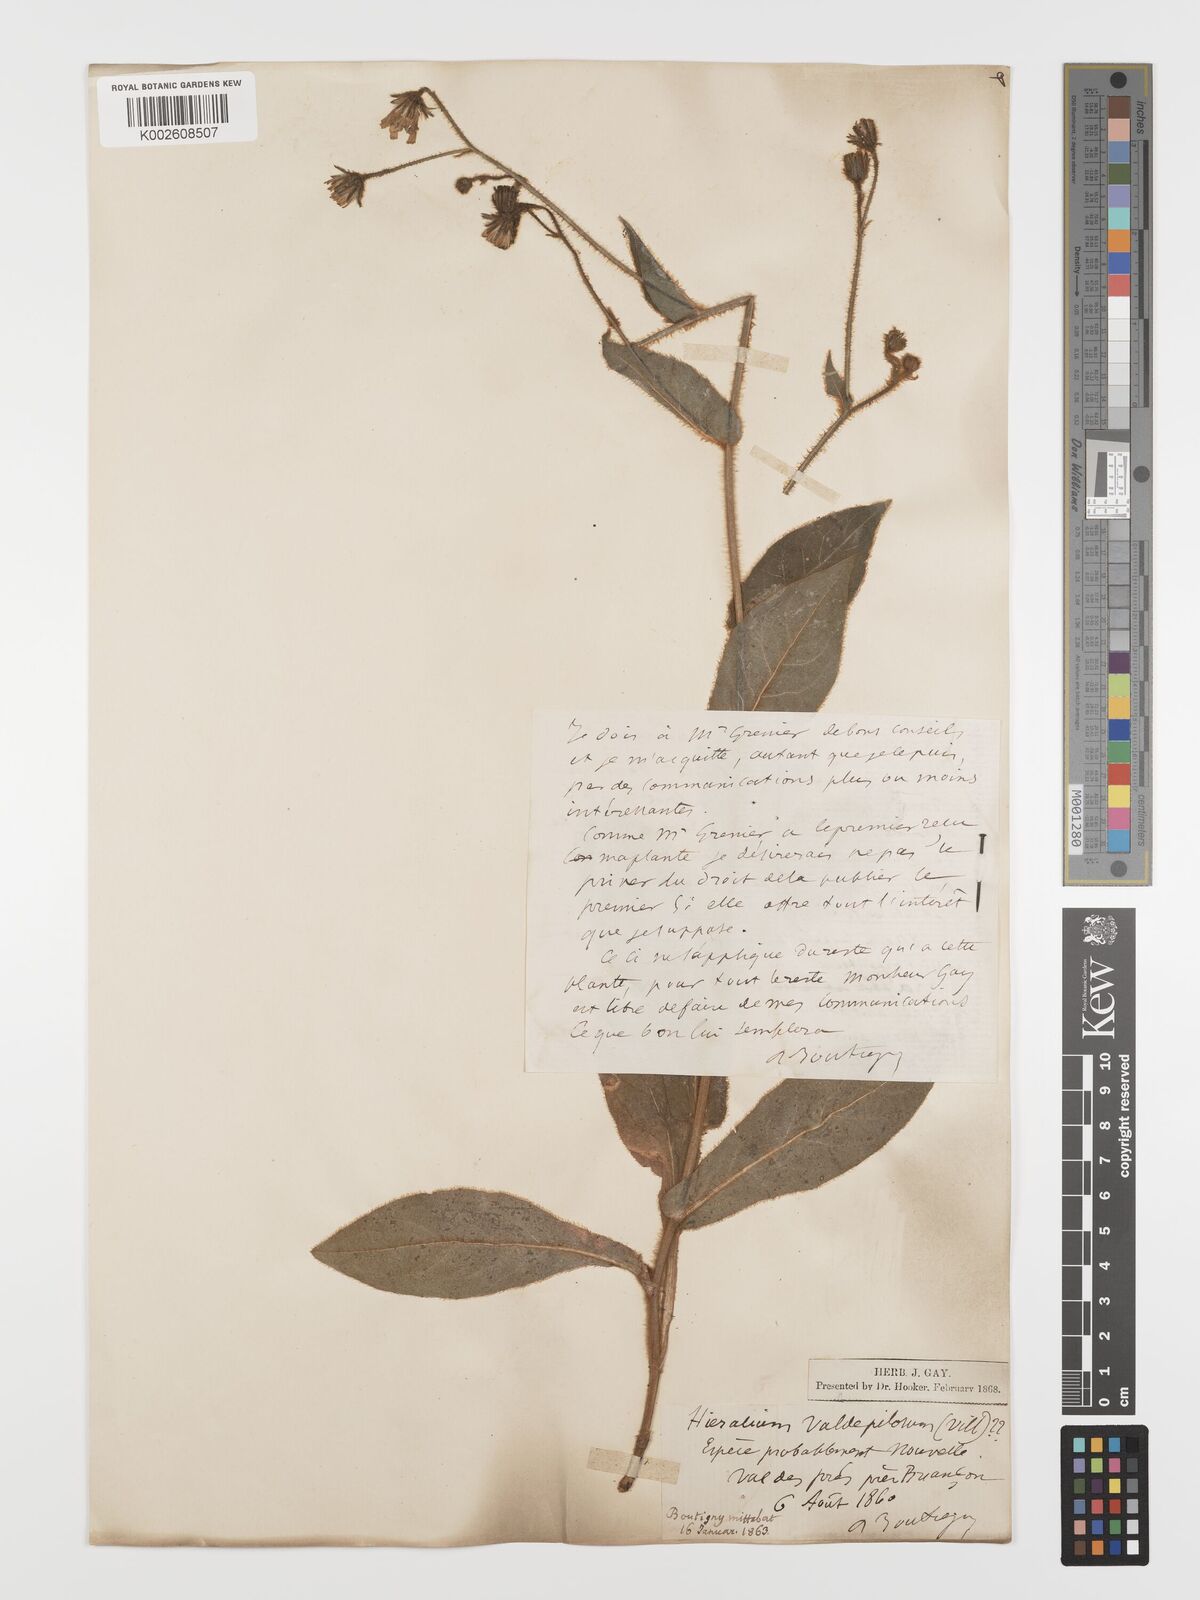 ROYAL BOTANIC GARDENS KEW
K002608507
Je dois à Mr Grenier debons conseils
et je m'acquitte, autant quejelepuis,
par des communications plus ou moins
intéressantes.
Comme Mr Grenier a lepremier recu
maplante je désirerais nepas le
priver du droit dela publier le
premier Si elle offre tout l'intérêt
que jesuppose.
Ce ci ne s'applique dureste qu'a cette
plante, pour tout lereste Monsieur Gay
est libre defaire demes communications
Ceque bon lui semblera
A Boutigny
HERB. J. GAY.
Presented by Dr. Hooker. February 1868.
Hieracium Valdepilosum (Vill)??
Espèce probablement Nouvelle
Val des prés près Briançon
6 Août 1860
A Boutigny
Boutigny mittebat
16 Januar. 1863.
inches
Density
Don Williams
M001280
Royal Botanic Gardens
Kew
copyright reserved
0 1 2 3 4 5 6 7 8 9 10
cm